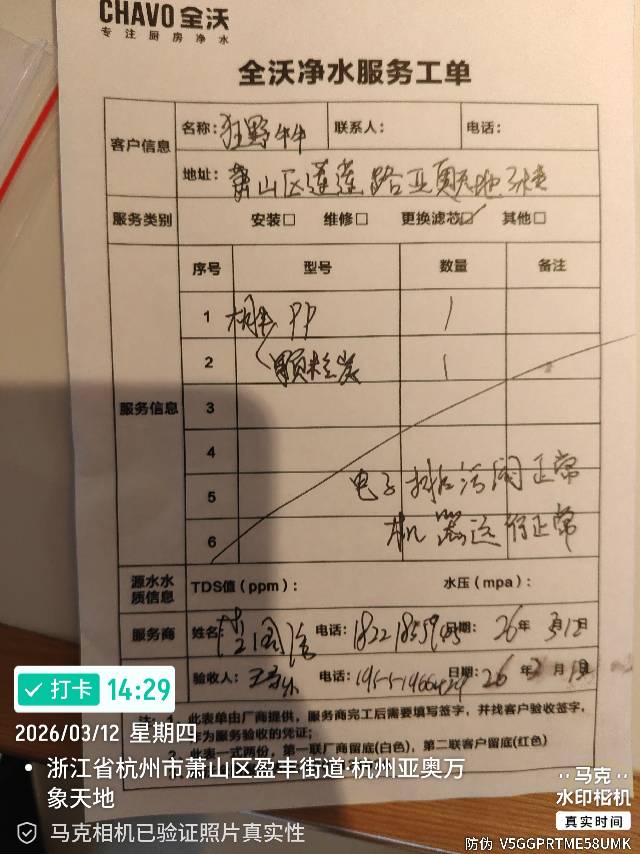 CHAVO 全沃
专注厨房净水
全沃净水服务工单
客户信息 名称：狂野牛牛 联系人： 电话：
地址：萧山区莲莲路亚奥天地
服务类别 安装□ 维修□ 更换滤芯☑ 其他□
服务信息 序号 型号 数量 备注
1 PP 1
2 颗粒炭 1
3
4
5 电子排污阀正常
6 机器运行正常
源水水质信息 TDS值（ppm）： 水压（mpa）：
服务商 姓名： 电话： 日期：26年3月12日
验收人： 电话： 日期：26年 月 日
注：1、此表单由厂商提供，服务商完工后需要填写签字，并找客户验收签字，
作为服务验收的凭证；
2、此表一式两份，第一联厂商留底(白色)，第二联客户留底(红色)
打卡 14:29
2026/03/12 星期四
浙江省杭州市萧山区盈丰街道·杭州亚奥万
象天地
马克相机已验证照片真实性
马克
水印相机
真实时间
防伪 V5GGPRTME58UMK